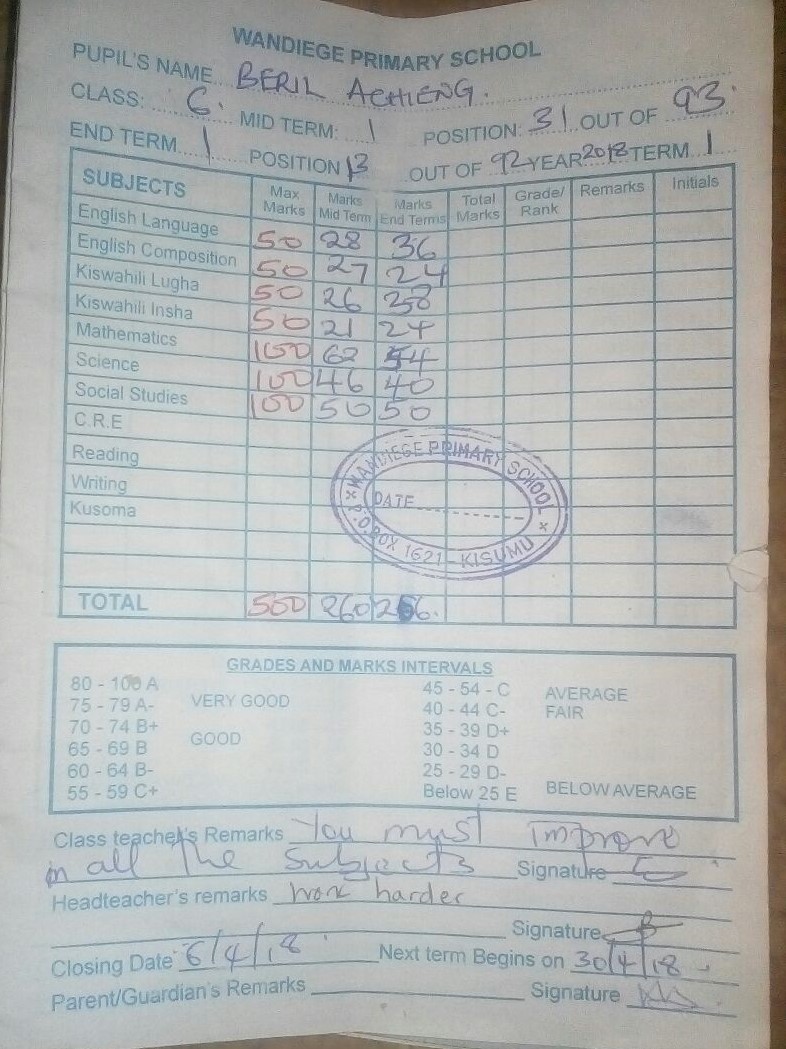 WANDIEGE PRIMARY SCHOOL
PUPIL'S NAME BERIL ACHIENG.
CLASS: 6. MID TERM: 1 POSITION: 31 OUT OF 93.
END TERM 1 POSITION 13 OUT OF 92 YEAR 2018 TERM 1
SUBJECTS Max Marks Marks Mid Term Marks End Terms Total Marks Grade/Rank Remarks Initials
English Language 50 28 36
English Composition 50 27 24
Kiswahili Lugha 50 26 28
Kiswahili Insha 50 21 24
Mathematics 100 62 54
Science 100 46 40
Social Studies 100 50 50
C.R.E
Reading
Writing
Kusoma
WANDIEGE PRIMARY SCHOOL
DATE
P.O. BOX 1621 - KISUMU
TOTAL 500 260 256.
GRADES AND MARKS INTERVALS
80 - 100 A 45 - 54 - C AVERAGE
75 - 79 A- VERY GOOD 40 - 44 C- FAIR
70 - 74 B+ 35 - 39 D+
65 - 69 B GOOD 30 - 34 D
60 - 64 B- 25 - 29 D-
55 - 59 C+ Below 25 E BELOW AVERAGE
Class teacher's Remarks You must improve
in all the subjects Signature
Headteacher's remarks work harder
Signature
Closing Date 6/4/18. Next term Begins on 30/4/18.
Parent/Guardian's Remarks Signature